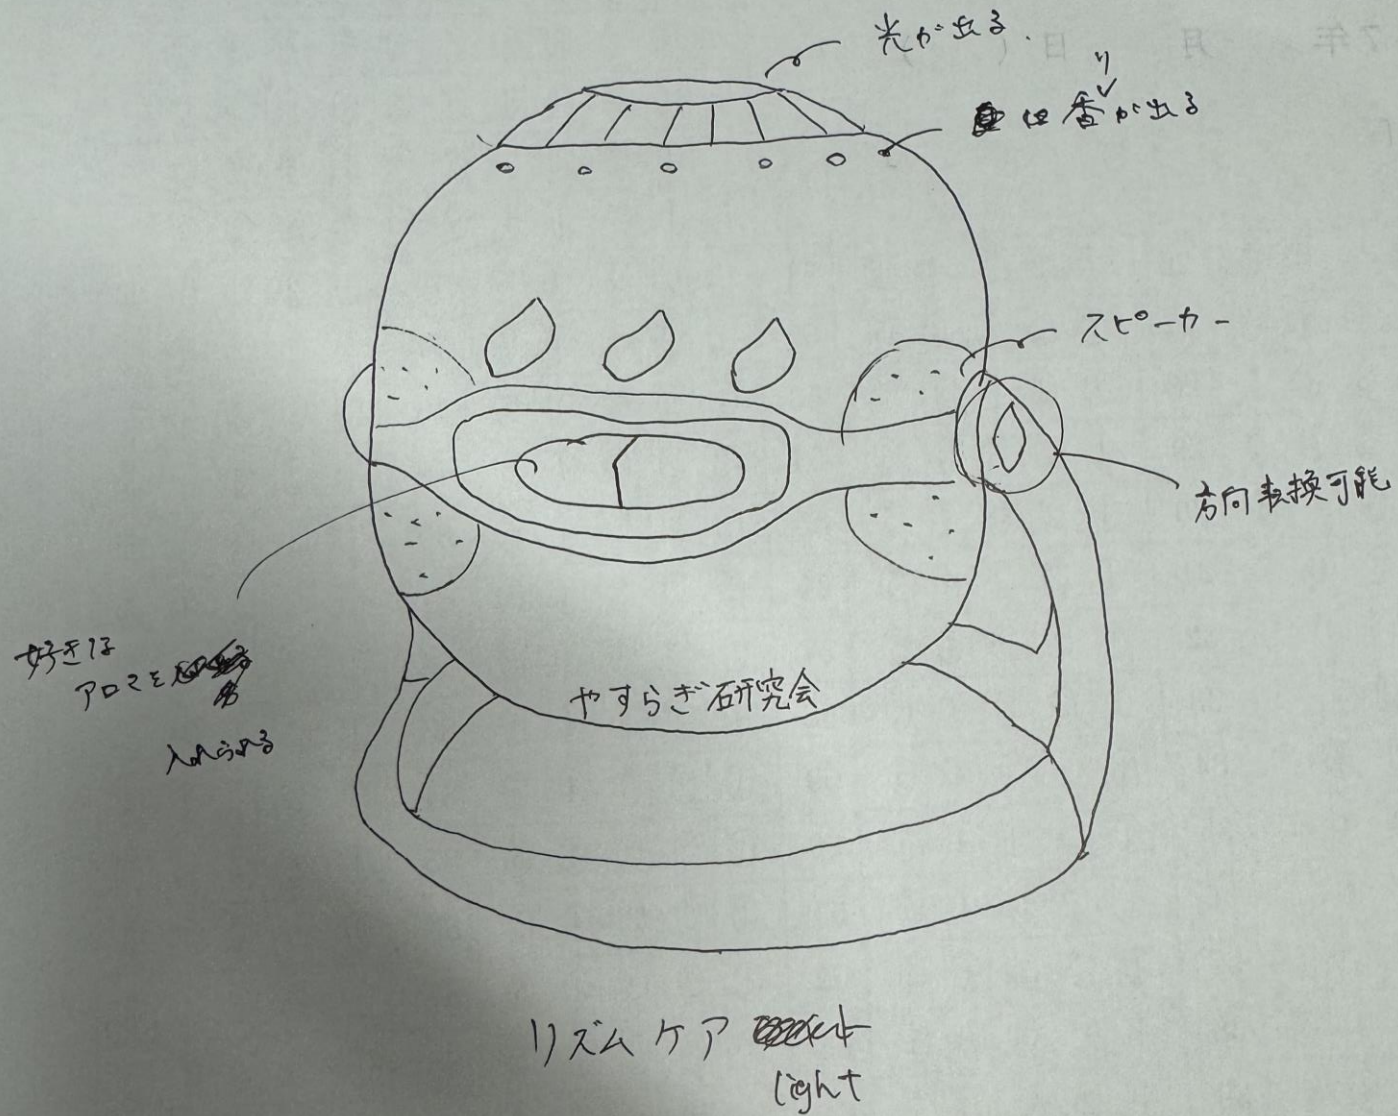 光が出る.
香りが出る
スピーカー
方向転換可能
好きな
アロマを
入れられる
やすらぎ研究会
リズムケア
light